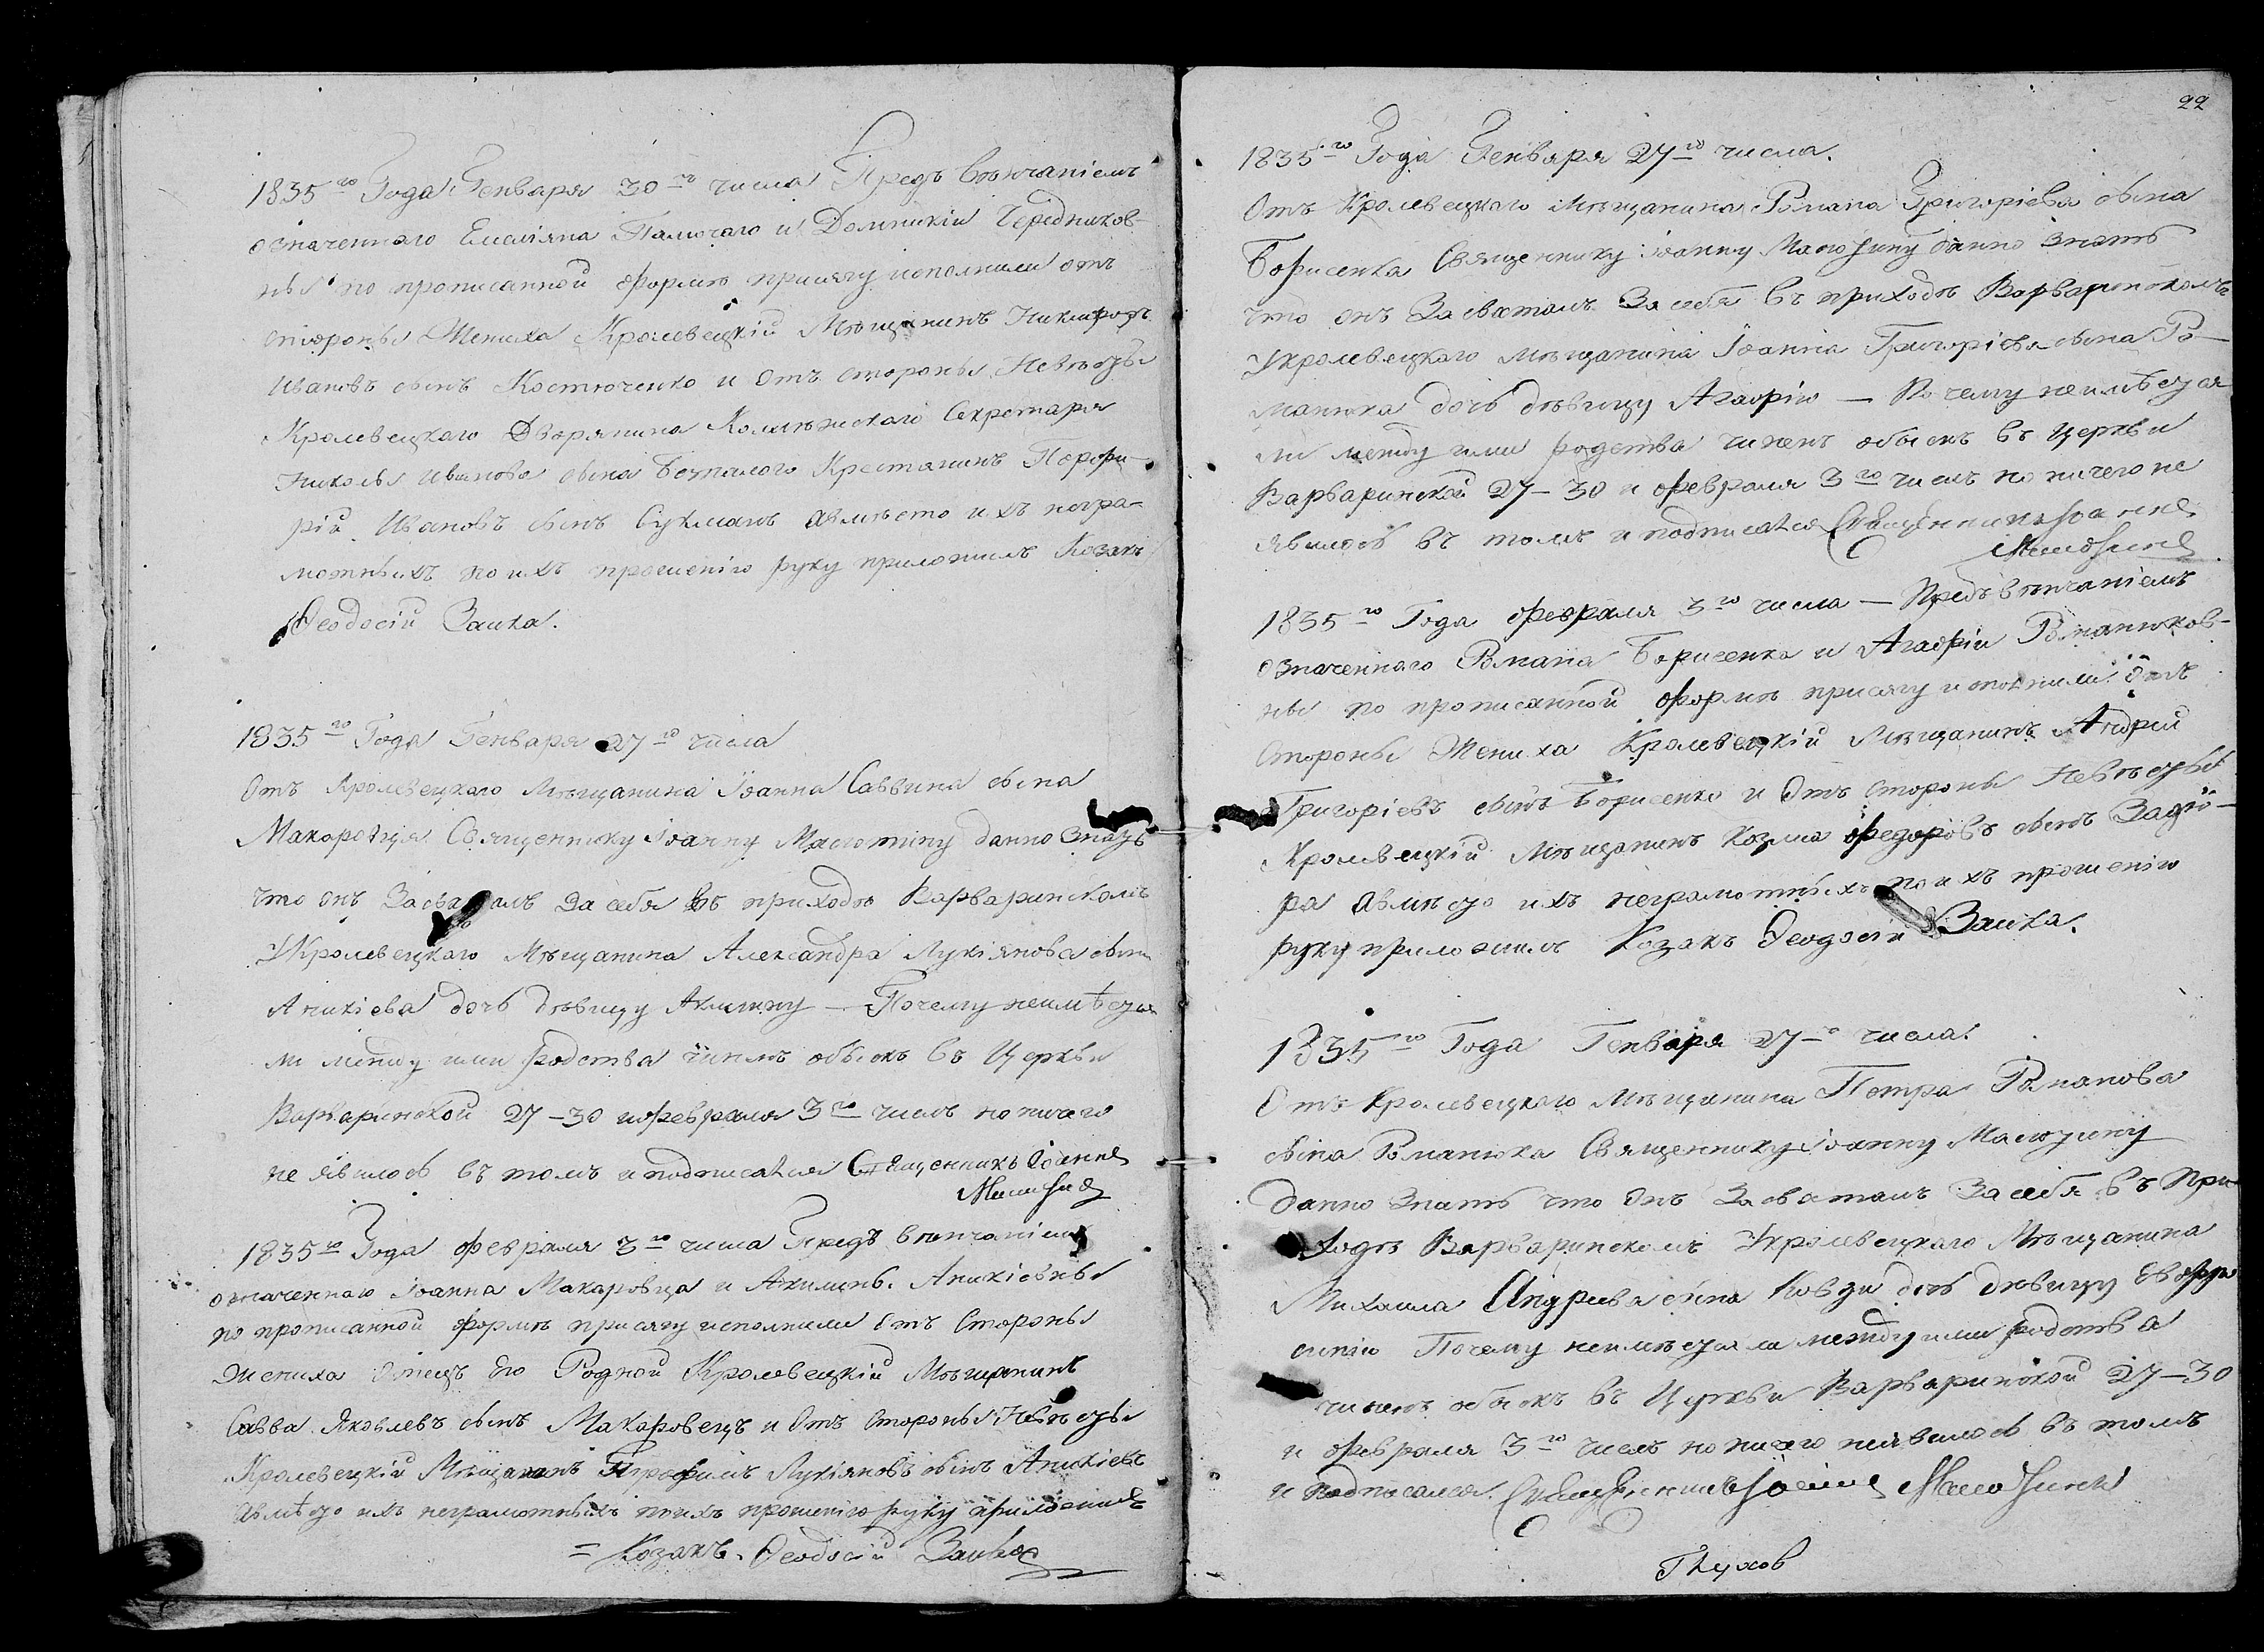 1835го Года Генваря 30го числа Предъ Венчаніемъ
означеннаго Емеліяна Палючаго и Домникіи Чередников-
ны по прописанной форме присягу исполнили отъ
стороны Жениха Кролевецкій Мещанинъ Никифоръ
Ивановъ сынъ Костюченко и Отъ стороны Невесты
Кролевецкаго Дворянина Колежскаго Секретаря
Николы Иванова сына Безпалого Крестанинъ Порфи-
рій Ивановъ сынъ Сукманъ авместо ихъ негра-
мотныхъ по ихъ прошенію руку приложилъ Козакъ
Ѳеодосій Заика.
1835го Года Генваря 27го числа
Отъ Кролевецкаго Мещанина Іоанна Саввина сына
Макаровца Священнику Іоанну Маютину данно знать
что онъ Засваталъ За себя въ приходе Варваринскомъ
Укролевецкаго Мещанина Александра Лукіянова сына
Аникіева дочь девицу Акилину — Почему неимѣется
ли между ими родства чиненъ обыскъ въ Церкви
Варваринской 27–30 и февраля 3го числъ но ничего
не явилось въ томъ и подписался Священникъ Іоаннъ
1835го Года февраля 3го числа Предъ венчаніемъ
означеннаго Іоанна Макаровца и Акилины Аникіевны
по прописанной форме присягу исполнили Отъ Стороны
Жениха Отецъ Его Родной Кролевецкій Мещанинъ
Савва Яковлевъ сынъ Макаровецъ и Отъ Стороны Невесты
Кролевецкій Мещанинъ Лукіяновъ сынъ Аникіевъ
авмѣсто ихъ неграмотныхъ поихъ прошенію руку приложилъ
= Козакъ Ѳеодосій Заика
22
1835го Года Генваря 27го числа.
Отъ Кролевецкаго Мещанина Романа Григоріева сына
Борисенка Священнику Іоанну Маютину данно знать
что онъ Засваталъ За себя въ приходе Варваринскомъ
Укролевецкаго Мещанина Іоанна Григоріева сына Ро-
манюка дочь девицу Агафію — Почему неимѣется
ли между ими родства чиненъ обыскъ въ Церкви
Варваринской 27–30 и февраля 3го числъ но ничего не
явилось въ томъ и подписался Священникъ Іоаннъ
1835го Года февраля 3го числа — Предъ венчаніемъ
означеннаго Романа Борисенка и Агафіи Романюков-
ны по прописанной форме присягу исполнили Отъ
Стороны Жениха Кролевецкій Мещанинъ Андрей
Григоріевъ сынъ Борисенко и Отъ стороны Невесты
Кролевецкій Мещанинъ Козма Федоровъ сынъ
авместо ихъ неграмотныхъ по ихъ прошенію
руку приложилъ Козакъ Ѳеодосій Заика.
1835го Года Генваря 27го числа.
Отъ Кролевецкаго Мещанина Петра Романова
сына Романюка Священнику Іоанну Маютину
данно Знать что Онъ Засваталъ За себя въ При-
ходе Варваринскомъ Укролевецкаго Мещанина
Михаила Андреева сына дочь девицу Евфро
синію Почему неиместся ли между ими родства
чиненъ обыскъ въ Церкви Варваринской 27–30
и февраля 3го числъ но ничего неявилось въ томъ
и подписался. Священникъ Іоаннъ
Глухов